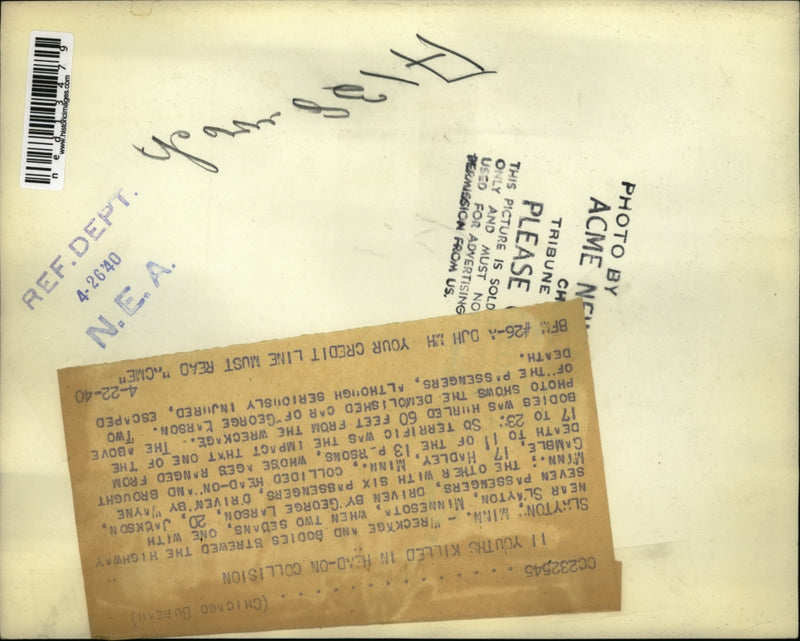 ned13479
www.historicimages.com
A
138
REF. DEPT.
4-26'40
N.E.A.
PHOTO BY
ACME
CH
TRIBUNE
PLEASE
THIS PICTURE IS SOLD
ONLY AND MUST NO
USED FOR ADVERTISING
PERMISSION FROM US.
(CHICAGO BUREAU)
CC232545
11 YOUTHS KILLED IN HEAD-ON COLLISION
SLAYTON, MINN. - WRECKAGE AND BODIES STREWED THE HIGHWAY
NEAR SLAYTON, MINNESOTA, WHEN TWO SEDANS, ONE WITH
SEVEN PASSENGERS, DRIVEN BY GEORGE LARSON, 20, JACKSON,
MINN.; THE OTHER WITH SIX PASSENGERS, DRIVEN BY WAYNE
GAMBLE, 17, HADLEY, MINN., COLLIDED HEAD-ON AND BROUGHT
DEATH TO 11 OF THE 13 PERSONS, WHOSE AGES RANGED FROM
17 TO 23. SO TERRIFIC WAS THE IMPACT THAT ONE OF THE
BODIES WAS HURLED 60 FEET FROM THE WRECKAGE. THE ABOVE
PHOTO SHOWS THE DEMOLISHED CAR OF GEORGE LARSON. TWO
OF THE PASSENGERS, ALTHOUGH SERIOUSLY INJURED, ESCAPED
DEATH.
BFM #26-A DJH MH YOUR CREDIT LINE MUST READ "ACME" 4-22-40